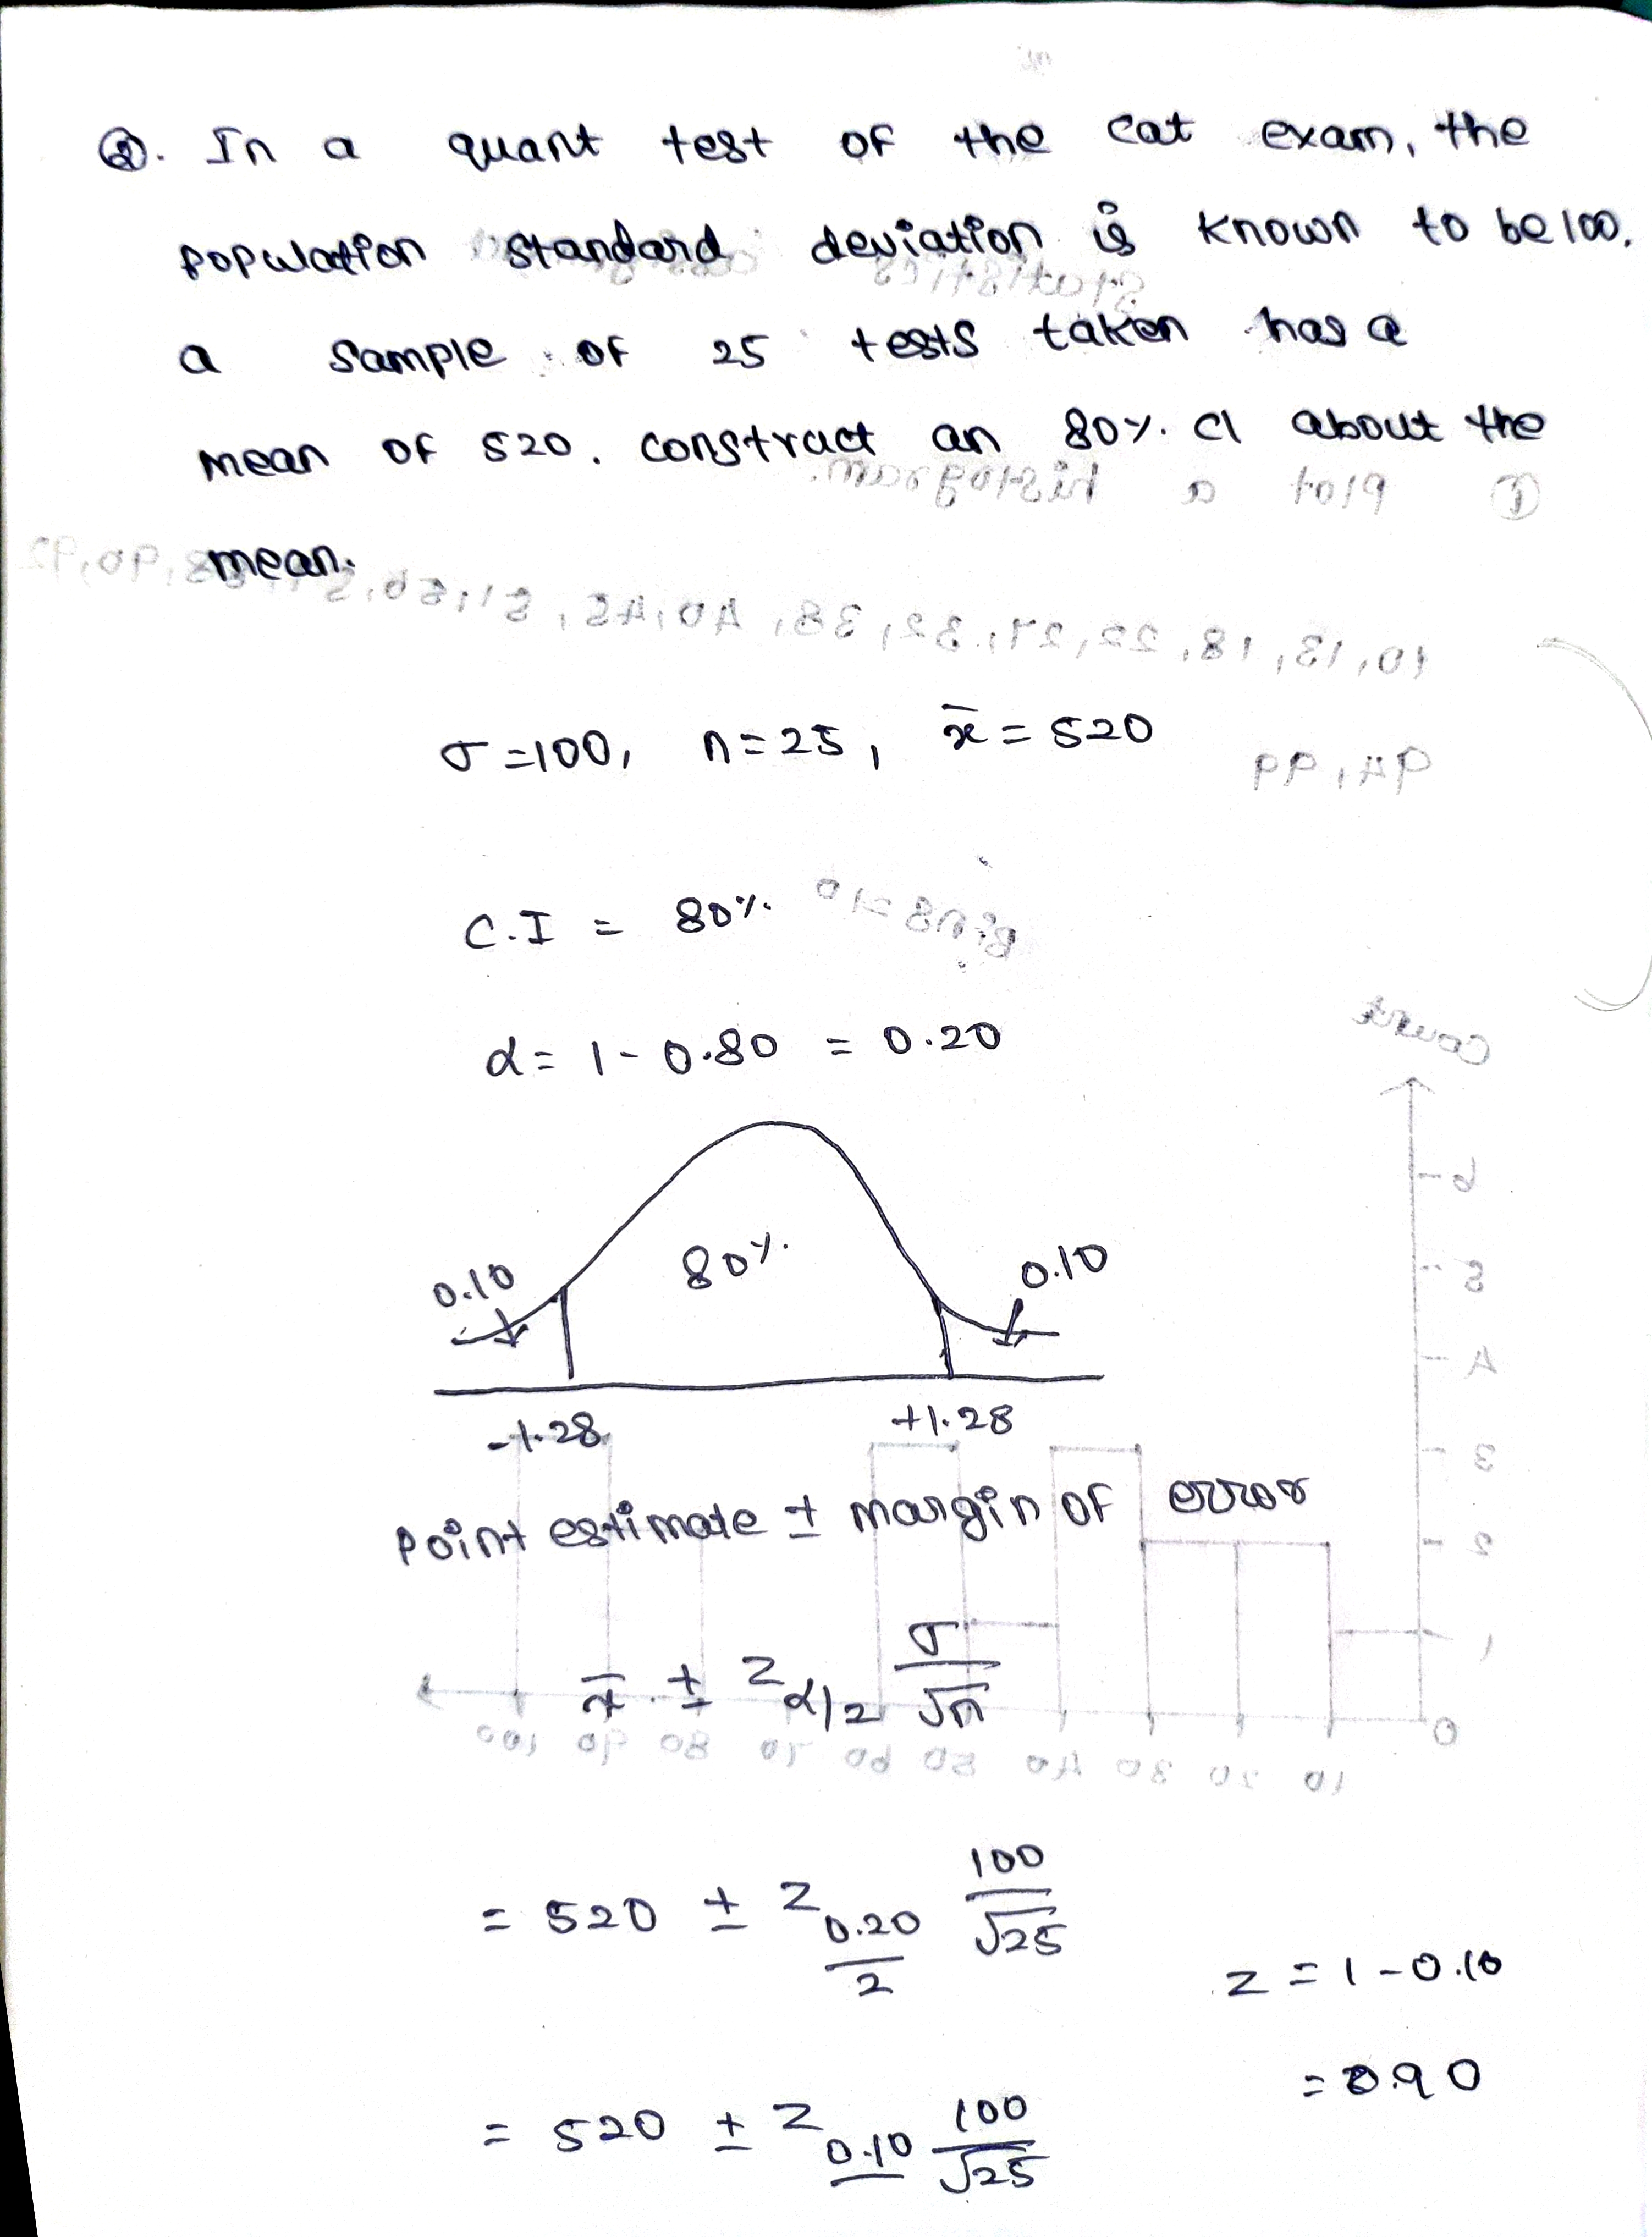 ②. In a quant test of the cat exam, the
population standard deviation is known to be 100.
a sample of 25 tests taken has a
mean of 520. constract an 80%. CI about the
mean.
σ = 100, n = 25, x̄ = 520
C.I = 80%.
α = 1 - 0.80 = 0.20
0.10 80%. 0.10
-1.28 +1.28
point estimate ± margin of error
x̄ ± z α/2 σ/√n
= 520 ± z 0.20/2 100/√25
z = 1 - 0.10
= 0.90
= 520 ± z 0.10 100/√25